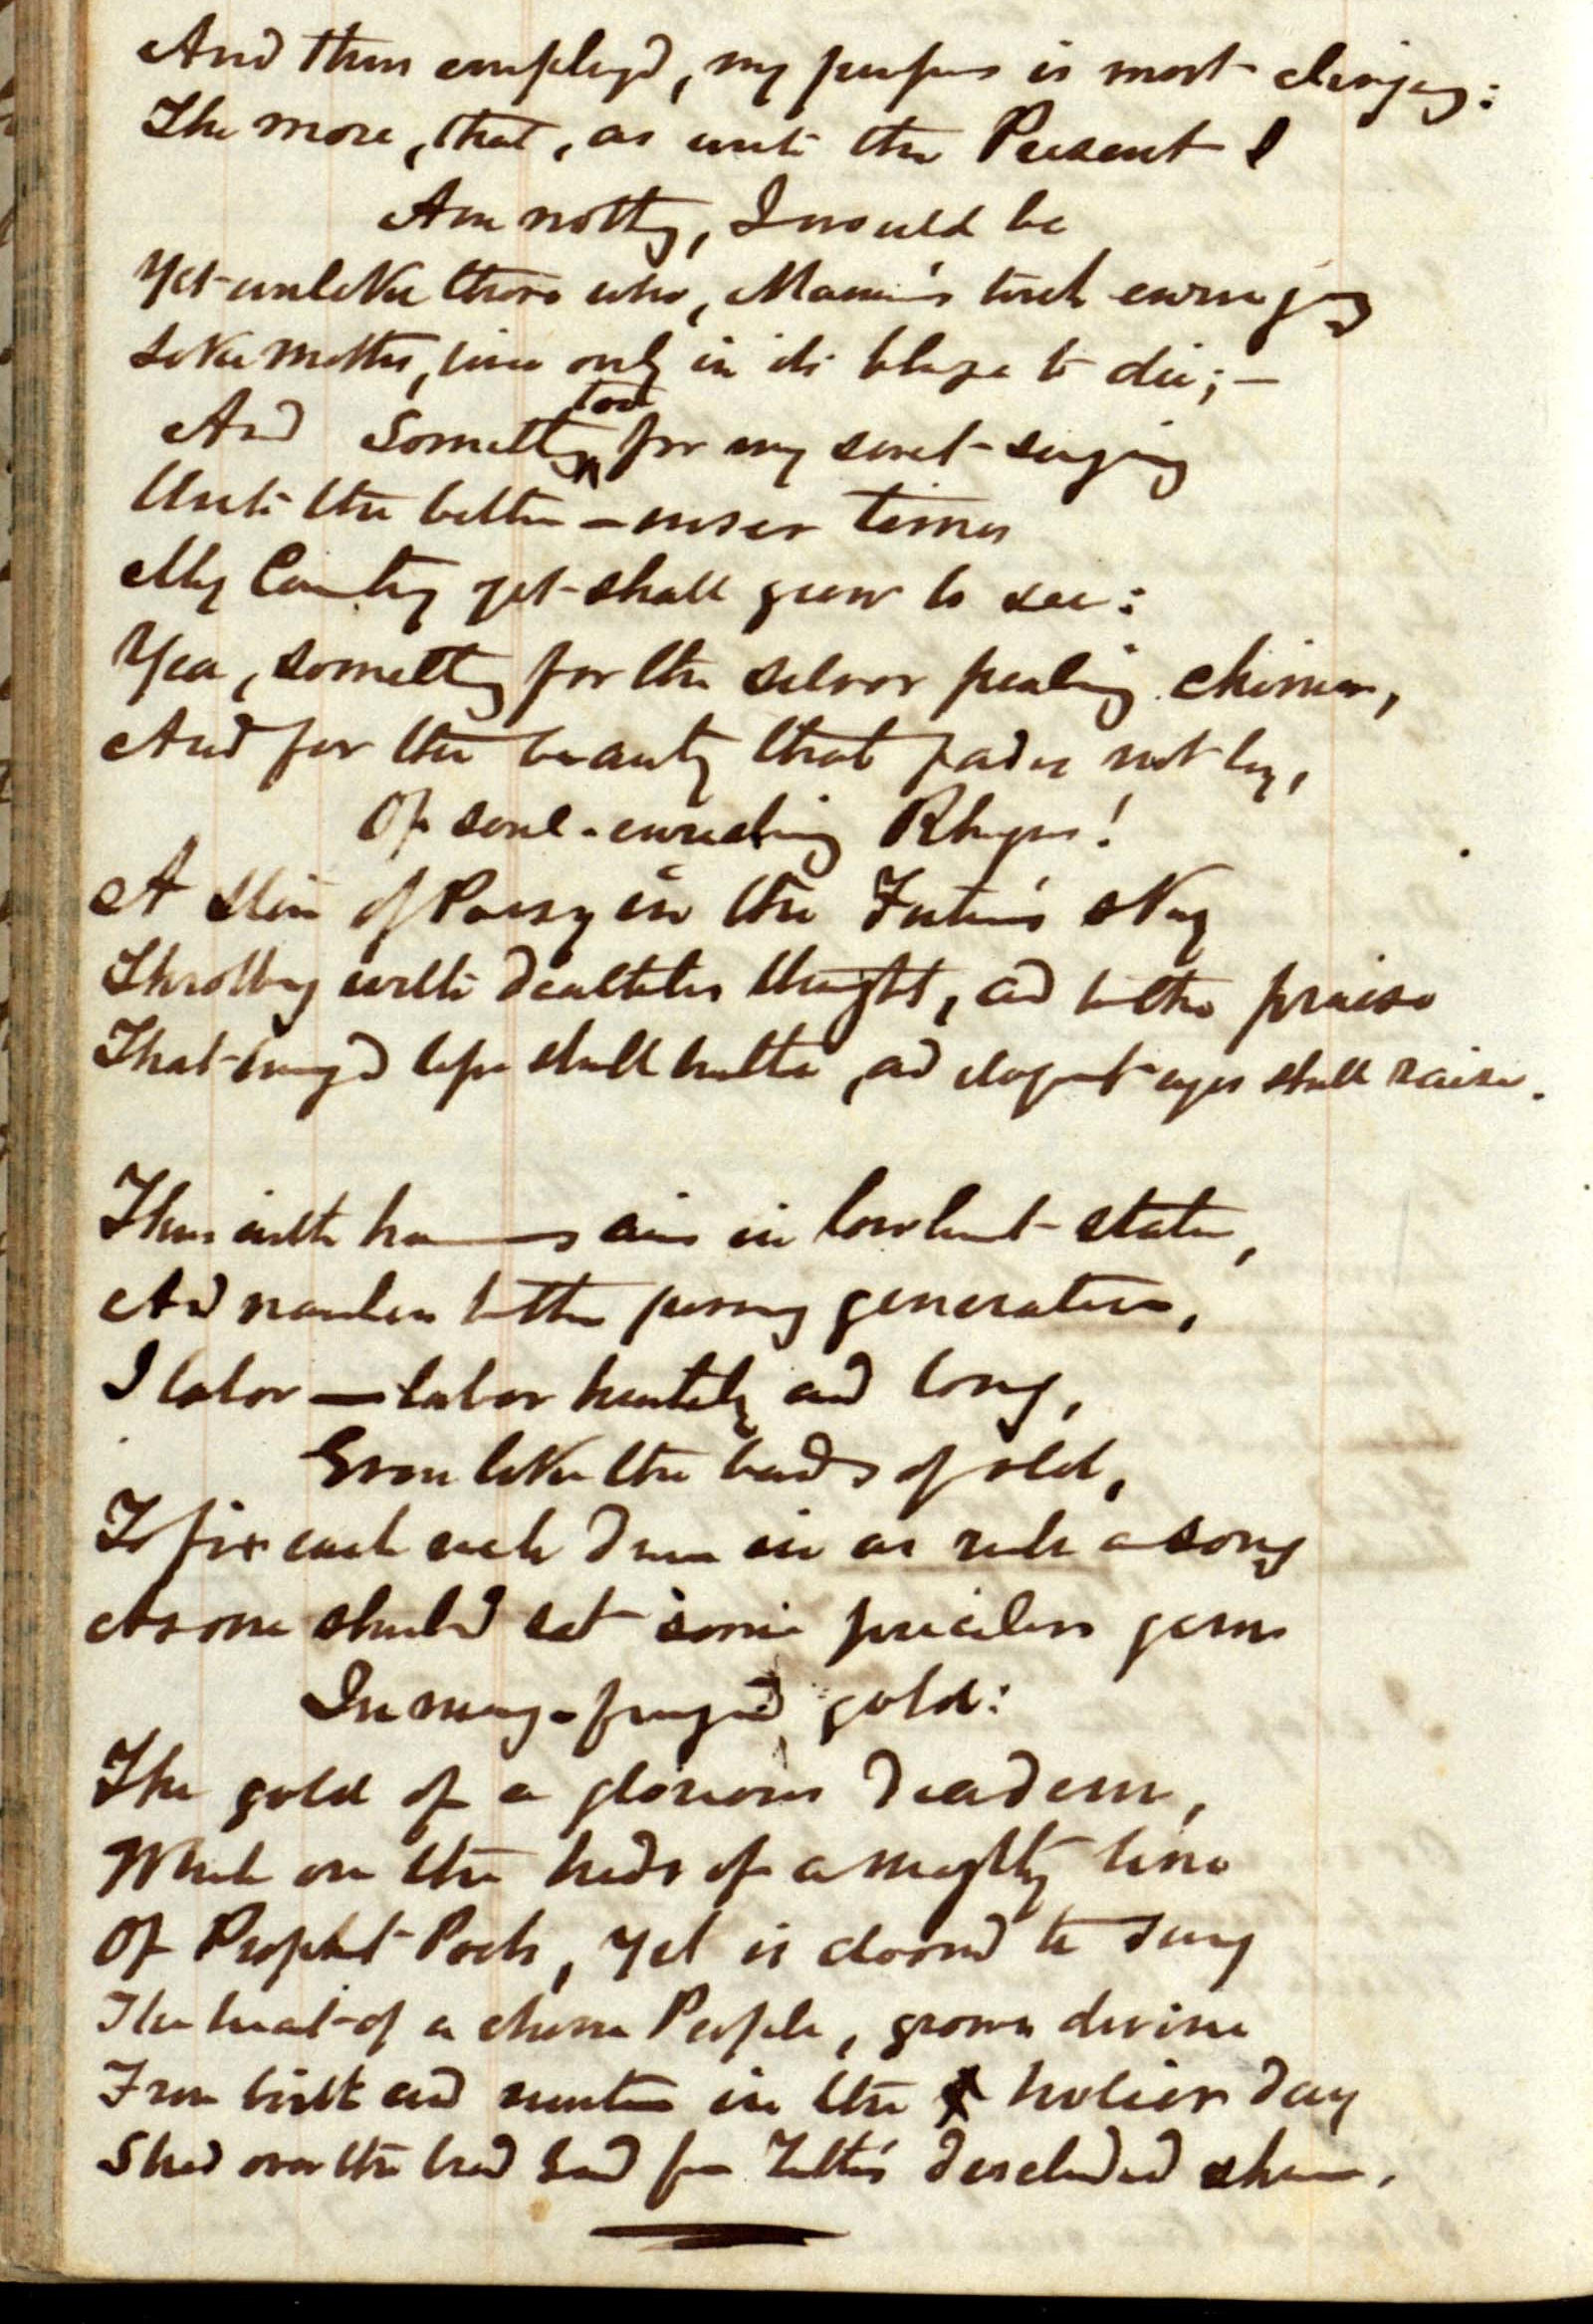 And thus employ'd, my purpose is most clinging:
The more, that, as unto the Present I
Am nothing, I would be
Yet unlike those who, Mammon's torch enringing
Like moths, live only in its blaze to die;—
And something too for my soul-singing
Unto the better — wiser times
My Country yet shall grow to see:
Yea, something for the silver pealing chimes,
And for the beauty that fades not by,
Of soul-enriching Rhyme!
A Star of Poesy in the Future's sky
Throbbing with deathless thought, and to the praise
That lips shall utter, and eloquent eyes shall raise.
Thus with aim in lowliest state,
And nameless to the passing generation,
I labor — labor heartily and long,
Even like the bards of old,
To fix each such dream in as rich a song
As one should set some priceless gem
In many-fringed gold:
The gold of a glorious diadem,
Which on the heads of a mighty line
Of Prophet Poets, yet is doomed to sway
The heart of a chosen People, grown divine
From birth and nurture in the holier day
Shed over the broad land from Truth's descended shrine.